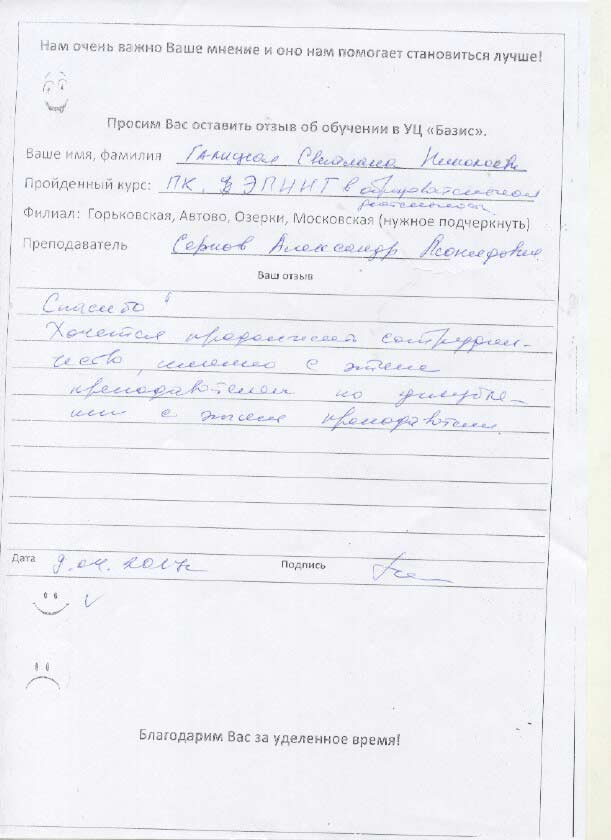 Нам очень важно Ваше мнение и оно нам помогает становиться лучше!
Просим Вас оставить отзыв об обучении в УЦ «Базис».
Ваше имя, фамилия Галицкая Светлана Николаевна
Пройденный курс: ПК, в образовательной
деятельности
Филиал: Горьковская, Автово, Озерки, Московская (нужное подчеркнуть)
Преподаватель Александр
Ваш отзыв
Спасибо!
Хочется продолжать сотрудни-
чество, именно с этими
преподавателем по
с этими преподавателем
Дата 9.04.2017г Подпись
Благодарим Вас за уделенное время!